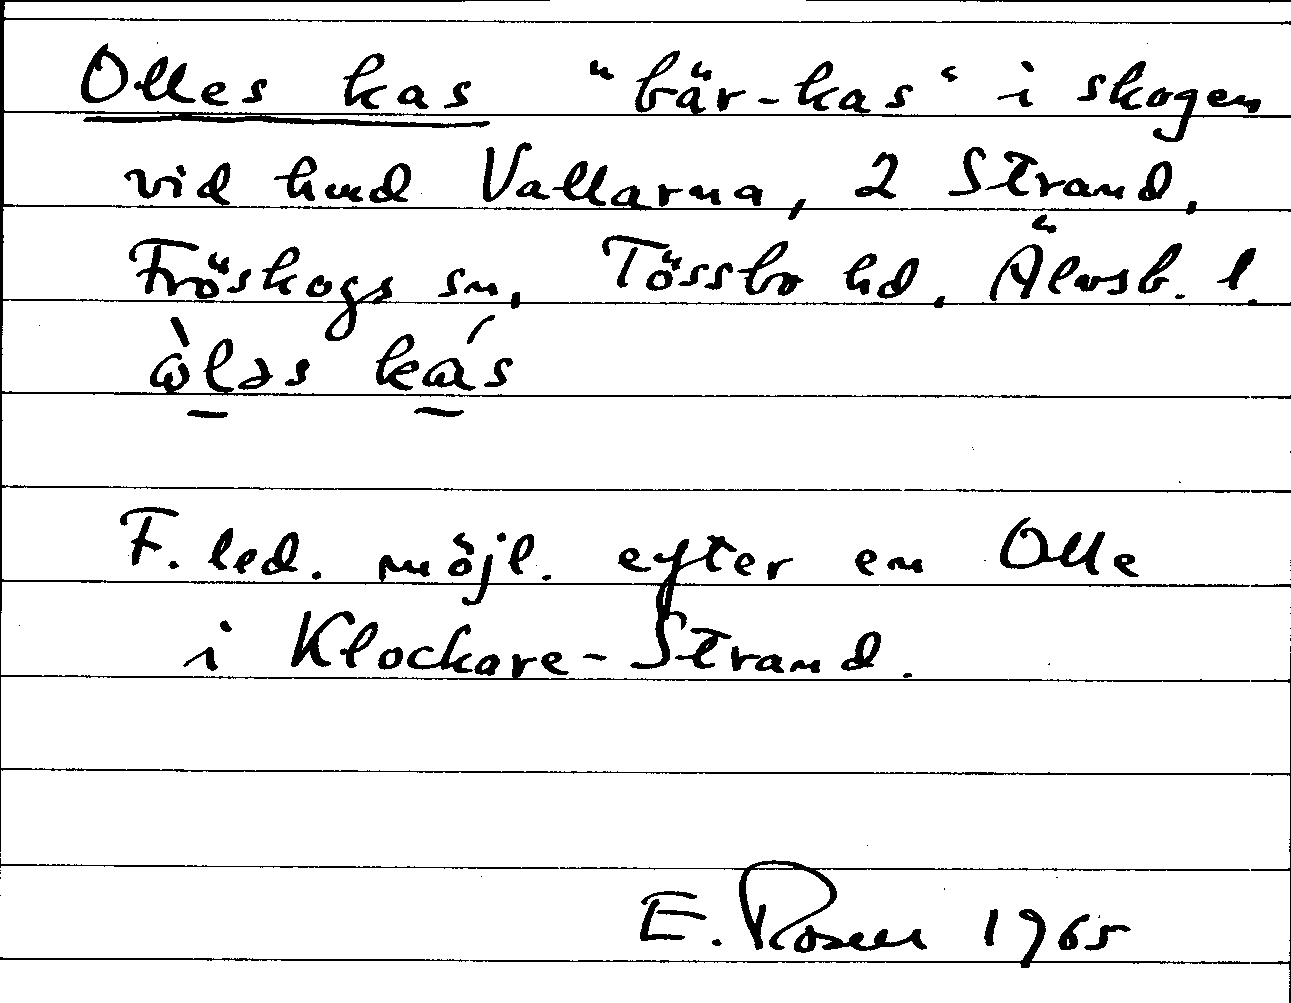 Olles kas "bär-kas" i skogen
vid hmd Vallarna, 2 Strand,
Fröskogs sn, Tössbo hd, Älvsb. l.
òləs kás
F. led. möjl. efter en Olle
i Klockare-Strand.
E. Rosell 1965